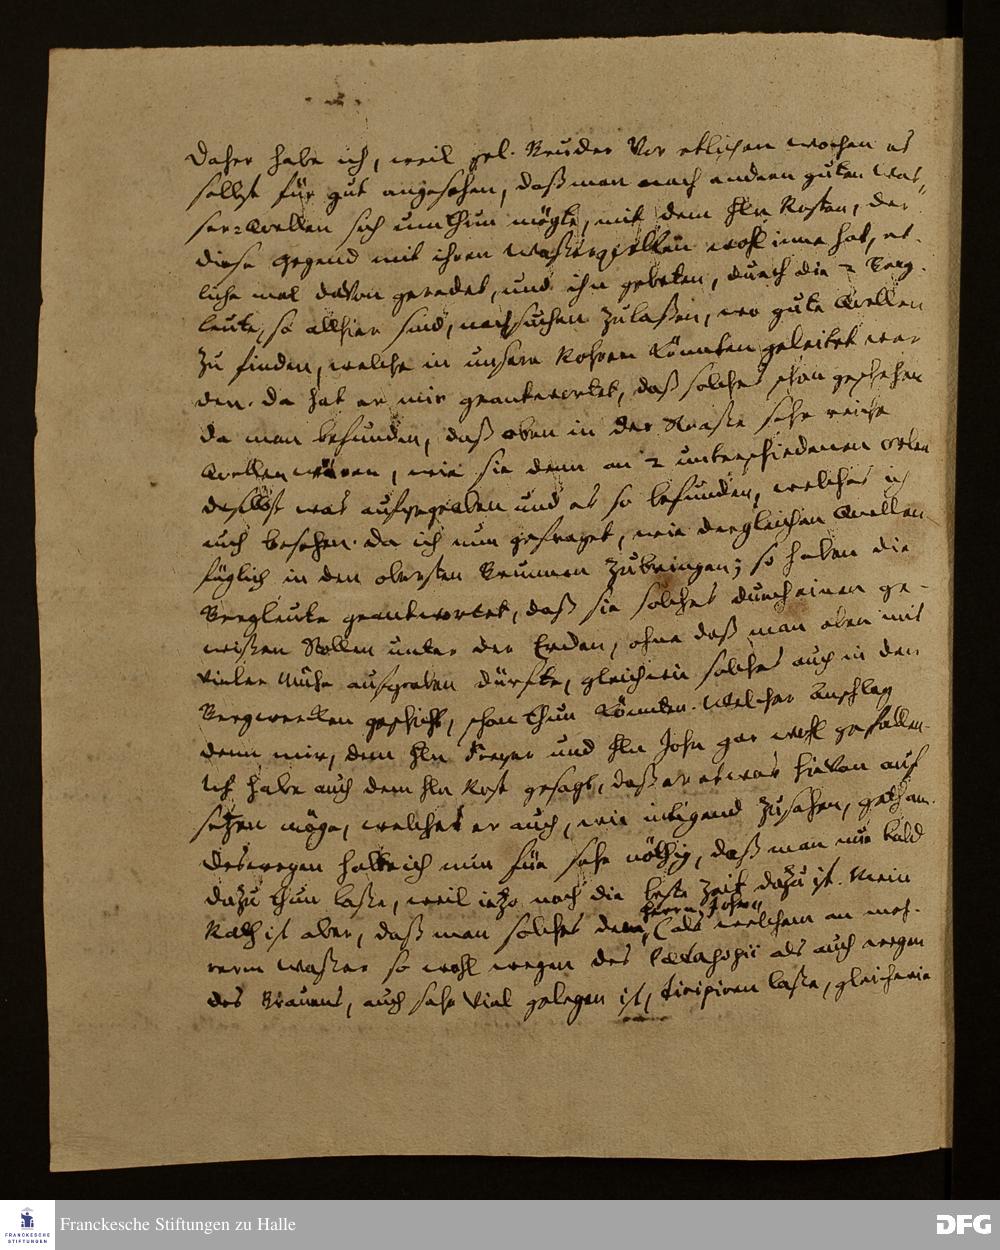 Daher habe ich, weil gel. Bruder vor etlichen wochen es
selbst für gut angesehen, daß man nach andern guten Was-
ser-Quellen sich umthun mögte, mit dem Hln Rosten, der
diese gegend mit ihren Waßerquellen wohl inne hat, et-
liche mal davon geredet, und ihn gebeten, durch die 2 Berg-
leute, so allhier sind, nachsuchen zulaßen, wo gute Quellen
zu finden, welche in unsere Rohren könnten geleitet wer
den. da hat er mir geantwortet, daß solches schon geschehen
da man befunden, daß oben in der Straße sehr reiche
Quellen wären, wie sie denn an 2 unterschiedenen orten
daselbst was aufgegraben und es so befunden, welches ich
auch besehen. da ich nun gefraget, wie dergleichen Quellen
füglich in den obersten Brunnen zubringen; so haben die
Bergleute geantwortet, daß sie solches durch einen ge-
wißen Stollen unter der Erden, ohne daß man oben mit
vieler Mühe aufgraben dürfte, gleichwie solches auch in den
Bergwercken geschicht, schon thun könnten. Welcher Anschlag
denn mir, dem Hln Freyer und Hln John gar wohl gefallen.
Ich habe auch dem Hln Rost gesagt, daß er etwas hievon auf
setzen möge, welches er auch, wie inligend zusehen, gethan.
Deswegen halte ich nun für sehr nöthig, daß man nur bald
dazu thun laße, weil ietzo noch die beste Zeit dazu ist. Mein
Herrn John
Rath ist aber, daß man solches dem, (als welchem an meh-
rerm waßer so wohl wegen des Paedagogii als auch wegen
des Brauens, auch sehr viel gelegen ist, dirigiren laße, gleichwie
Franckesche Stiftungen zu Halle
FRANCKESCHE
STIFTUNGEN
DFG